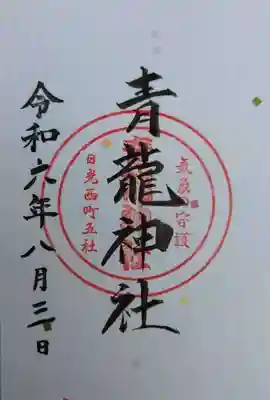 青龍神社
気象守護
日光西町五社
令和六年八月三日